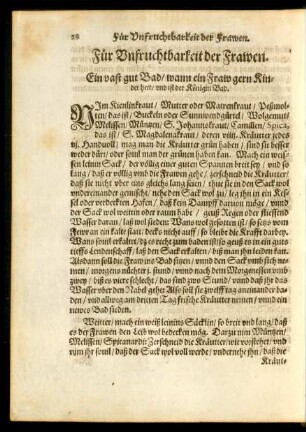 28 Für Vnfruchtbarkeit der Frawen.
Für Vnfruchtbarkeit der Frawen.
Ein vast gut Bad / wann ein Fraw gern Kin-
der hett / vnd ist der Königin Bad.
NIm Kienlinkraut / Mutter oder Matrenkraut /
ten / das ist / Buckeln oder Sunnwendgürtel / Wolgemut /
Melissen / Müntzen / S. Johannskraut / Camillen / Spica,
das ist / S. Magdalenakraut / deren vier Kräuter jedes
vj. Handvoll / mag man die Kräutter grün haben / sind sie besser
weder dürr / oder sonst man der grünen haben kan. Mach ein weis-
sen Sack / der völlig einer guten Spannen breit sey / vnd so
lang / daß er völlig vmb die Frawen gehe / zerschneid die Kräutter /
daß sie nicht vber eins gleichs lang sein / thus sie in den Sack wol
vndereinander gemischt / nehe den Sack wol zu / leg jhn in ein Kes-
sel oder verdeckten Hafen / daß kein Dampff darvon müge / vnnd
der Sack wol weittin oder raum habe / geuß Regen oder fliessend
Wasser daran / laß wol sieden: Wans wol gesotten ist / so setzs vom
Fewr an ein kalte statt / decks nicht auff / so bleibt die Krafft darbey.
Wans sonst erkaltet / das es recht zum baden ist / so geuß es in ein guts
tieffs Lendenschaff / laß den Sack erkalten / biß man jhn leiden kan.
Alsdann soll die Fraw ins Bad sitzen / vnnd den Sack vmb sich ne-
men / morgens nüchter j. stund / vnnd nach dem Morgenessen vmb
zwey / biß es viere schlecht / das sind zwo Stund / vnnd daß jhr das
Wasser vber den Nabel gehe: Also soll sie zwölff tag aneinander ba-
den / vnd allweg am dritten Tag frische Kräutter nemen / vnnd ein
newes Bad sieden.
Weitter / mach ein weiß leinins Säcklin / so breit vnd lang / daß
es der Frawen den Leib wol bedecken mög. Darzu nim Müntzen /
Melissen / Spicanardi: Zerschneid die Kräutter / wie vorstehet / vnd
nim jhr souil / daß der Sack wol voll werde / vndernehe jhn / daß die
Kräut-